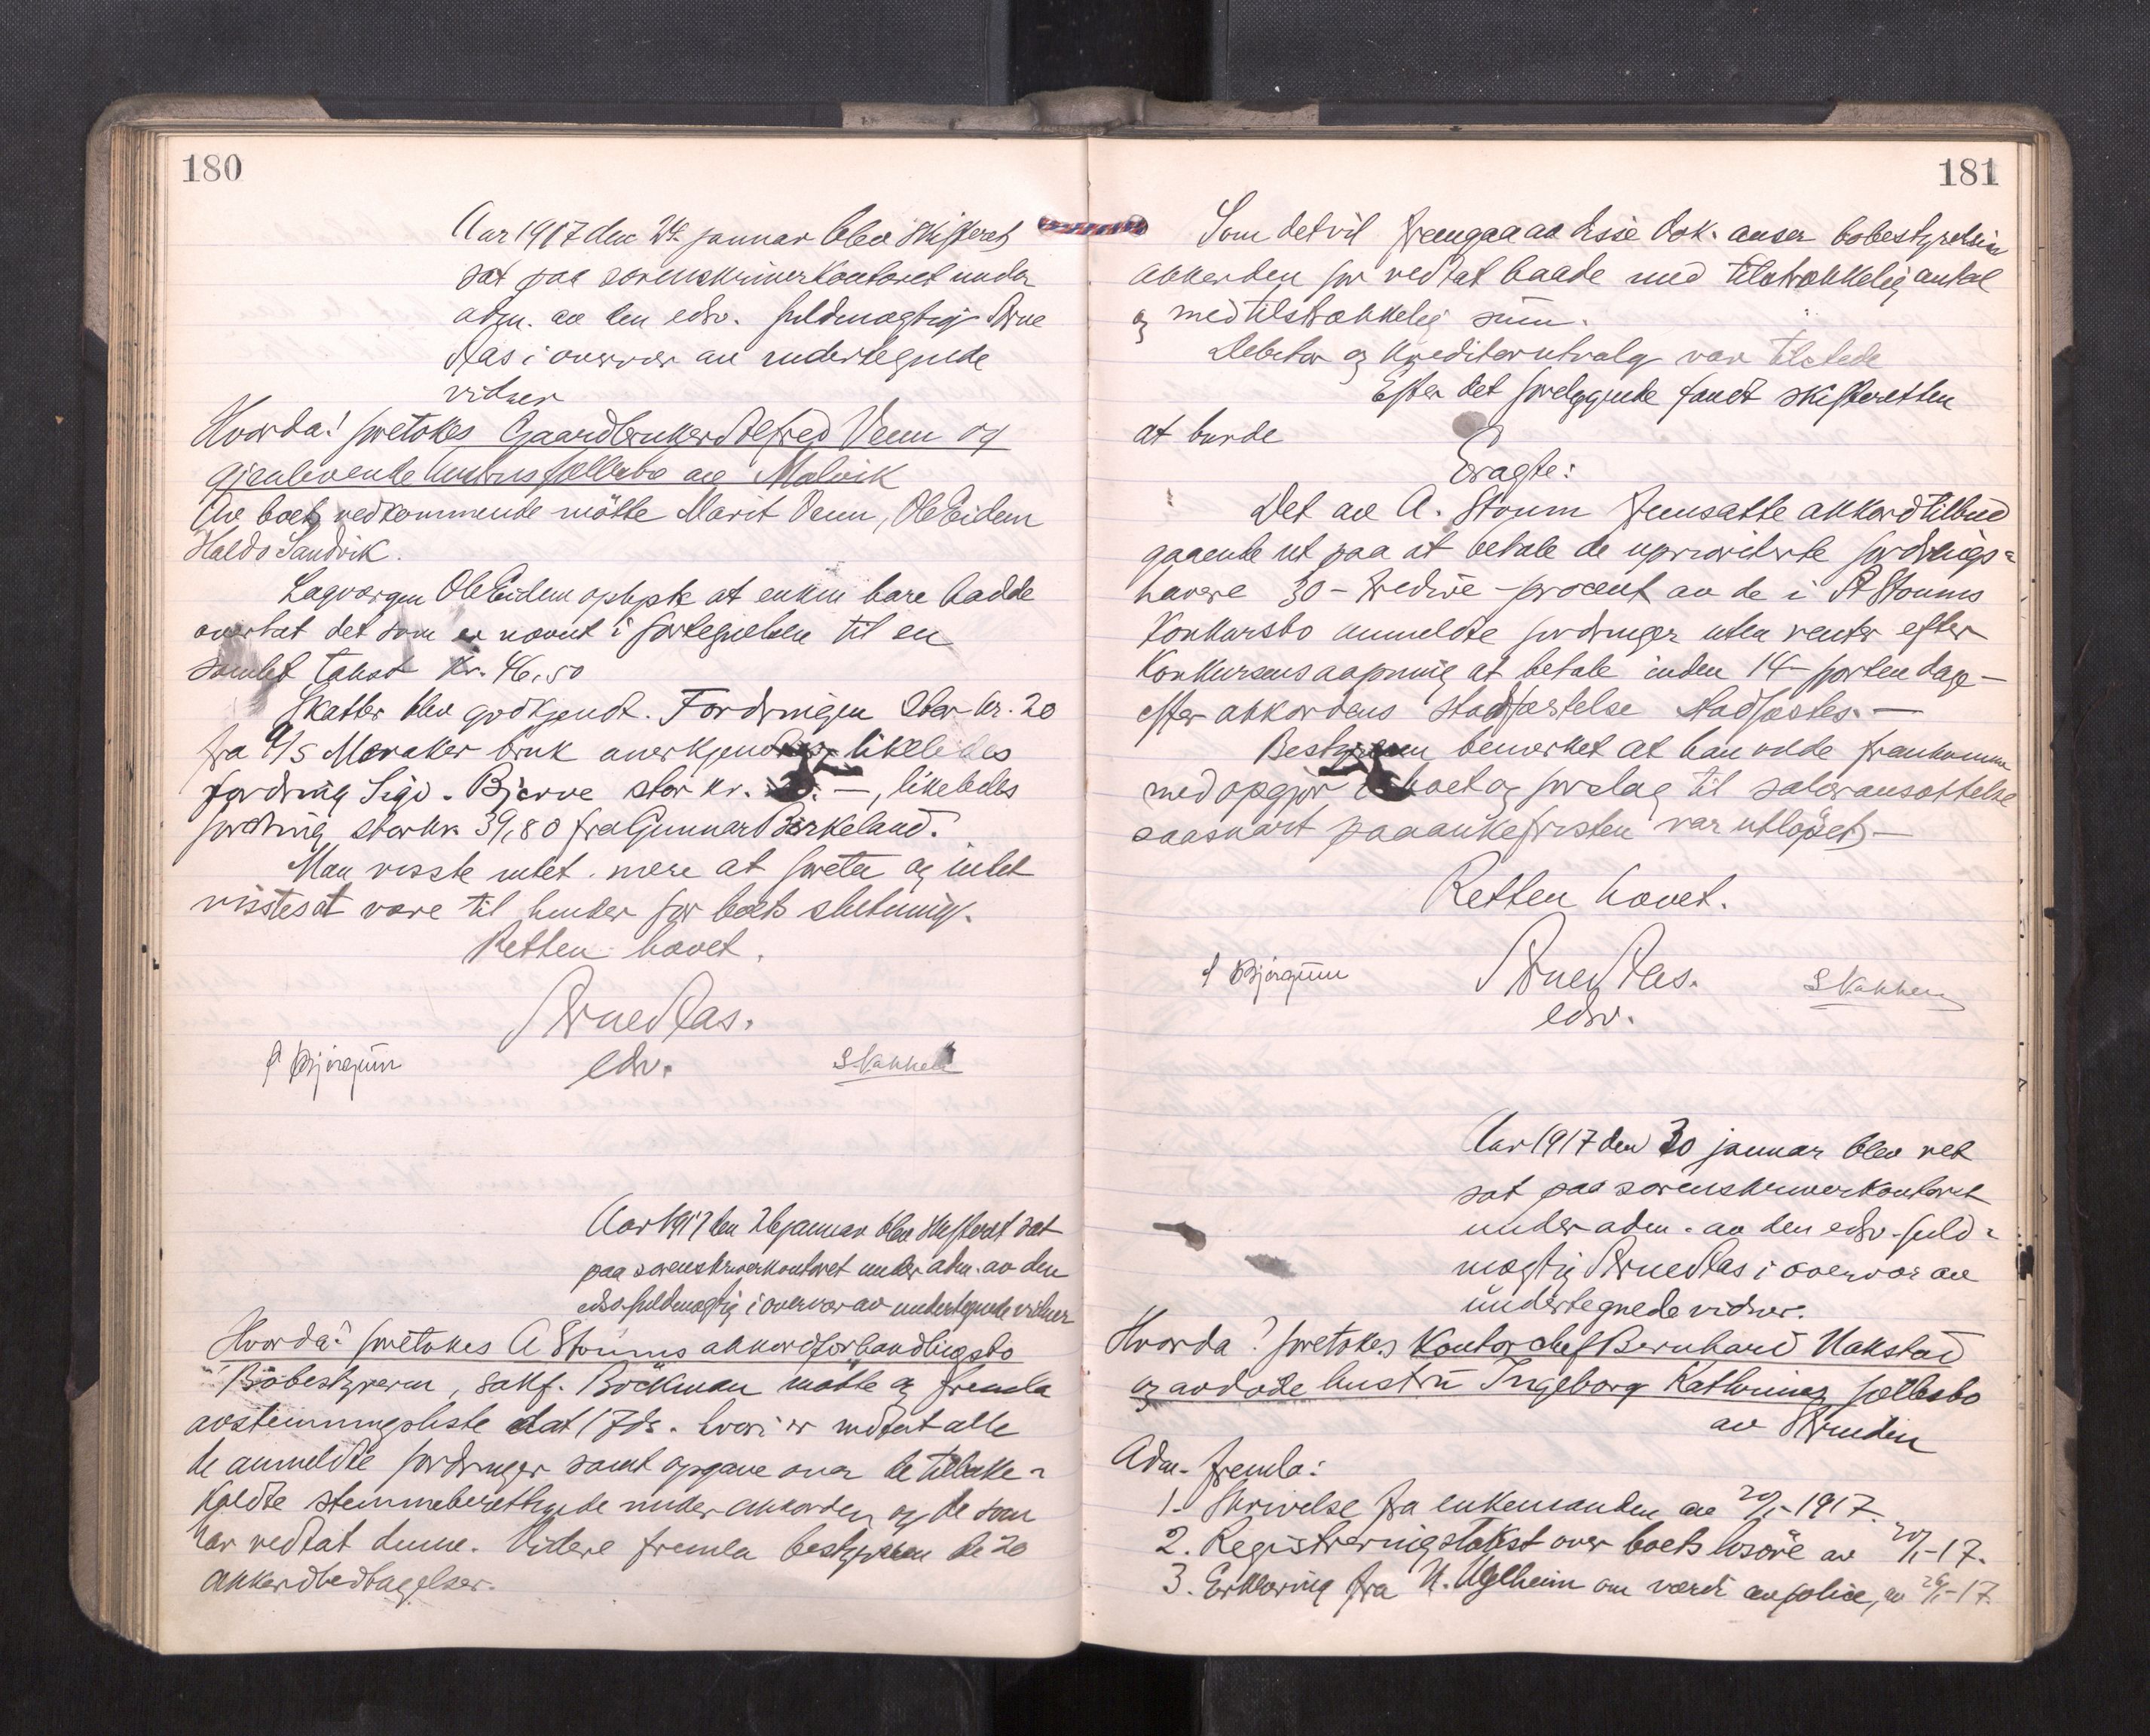 180
Aar 1917 den 24. januar blev skifteret
sat paa sorenskriverkontoret under
adm. av den edsv. fuldmægtig Arne
Aas i overvær av undertegnede
vidner
Hvorda! foretokes Gaardbruker Alfred Venn og
gjenlevende hustrus fællesbo av Malvik
Av boets vedkommende mötte Marit Venn, Ole Eidem
Haldo Sandvik.
Lagvergen Ole Eidem oplyste at enken bare hadde
overtat det som er nævnt i fortegnelsen til en
samlet takst kr. 46,50
Skatter blev godkjendt. Fordringen stor kr. 20
fra A/S Meraker bruk anerkjendtes, likeledes
fordring Sigv. Bjerve stor kr. —, likeledes
fordring stor kr. 39,80 fra Gunnar Birkeland.
Man visste intet mere at foreta og intet
vistes at være til hinder for boets slutning.
Retten hævet.
Arne Aas.
edsv.
Bjørgum
S. Nakken
Aar 1917 den 26 januar blev skifteret sat
paa sorenskriverkontoret under adm. av den
edsv. fuldmægtig i overvær av undertegnede vidner
Hvorda? foretokes A Stoums akkordforhandlingsbo
Bobestyreren, sakf. Böckman mötte og fremla
avstemningsliste dat 17 ds. hvori er indtat alle
de anmeldte fordringer samt opgave over de tilbake-
holdte stemmeberettigede under akkorden og de som
har vedtat denne. Videre fremla bestyreren de 20
akkordvedtagelser.
181
Som det vil fremgaa av disse dok. anser bobestyrelsen
akkorden for vedtat baade med tilstrækkelig antal
og med tilstrækkelig sum.
Debitor og kreditorutvalg var tilstede
Efter det foreliggende fandt skifteretten
at burde
Eragte:
Det av A. Stoum fremsatte akkordtilbud
gaaende ut paa at betale de uprioriterte fordrings-
havere 30 - tredive - procent av de i A Stoums
konkursbo anmeldte fordringer uten renter efter
konkursens aapning at betale inden 14 - fjorten dage —
efter akkordens stadfæstelse stadfæstes. —
Bestyreren bemerket at han vilde fremkomme
med opgjør i boet og forslag til salæransættelse
saasnart paaankefristen var utløpet. —
Retten hævet.
Bjørgum
Arne Aas.
S Nakken
edsv.
Aar 1917 den 30 januar blev ret
sat paa sorenskriverkontoret
under adm. av den edsv. fuld-
mægtig Arne Aas i overvær av
undertegnede vidner.
Hvorda? foretokes Kontorchef Bernhard Hakstad
og avdøde hustru Ingeborg Kathrines fællesbo
av Strinden
Adm. fremla:
1. Skrivelse fra enkemanden av 20/1-1917.
2. Registreringstakst over boets løsöre av 20/1-17.
3. Erklæring fra N. Uglheim om værdi av police, av 26/1-17.